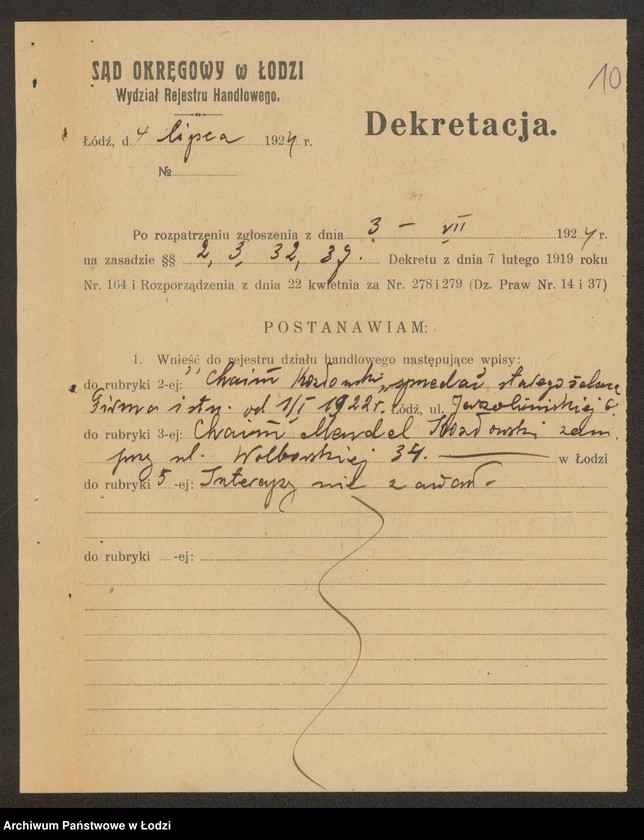 10
SĄD OKRĘGOWY w ŁODZI
Wydział Rejestru Handlowego.
Dekretacja.
Łódź, d. 4 lipca 1924 r.
№
Po rozpatrzeniu zgłoszenia z dnia 3 – VII 1924 r.
na zasadzie §§ 2, 3, 32, 39. Dekretu z dnia 7 lutego 1919 roku
Nr. 164 i Rozporządzenia z dnia 22 kwietnia za Nr. 278 i 279 (Dz. Praw Nr. 14 i 37)
POSTANAWIAM:
1. Wnieść do rejestru działu handlowego następujące wpisy:
do rubryki 2-ej: "Chaim Kozłowski", sprzedaż starego żelaza
Firma istn. od 1/I 1922 r. Łódź, ul. 6.
do rubryki 3-ej: Chaim Mendel Kozłowski zam.
przy ul. Wolborskiej 34. w Łodzi
do rubryki 5-ej: Intercyzy nie zawarł.
do rubryki -ej:
Archiwum Państwowe w Łodzi